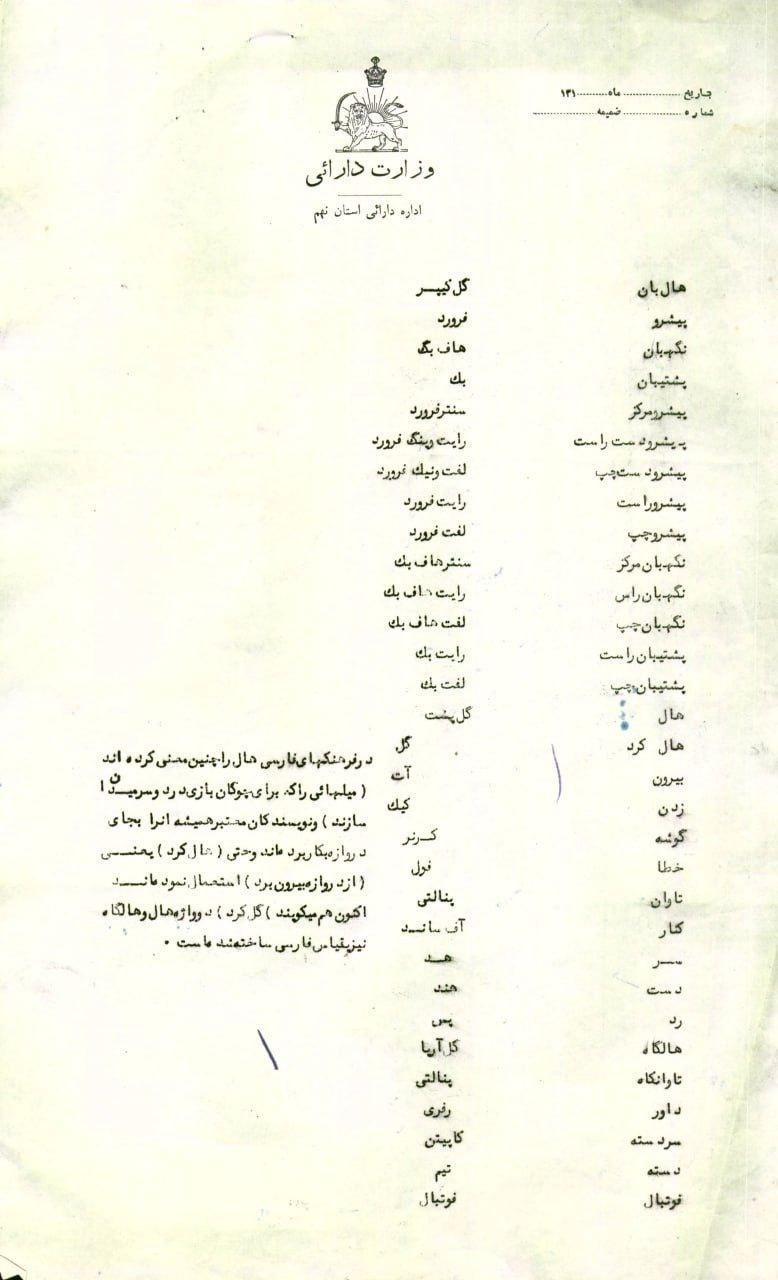 تاریخ .................. ماه .........۱۳۱
شماره .................. ضمیمه ..................
وزارت دارائی
اداره دارائی استان نهم
هال بان گل کیپر
پیشرو فرورد
نگهبان هاف بگ
پشتیبان بك
پیشرومرکز سنترفرورد
پیشرودست راست رایت وینگ فرورد
پیشرودست چپ لفت ونیك فرورد
پیشروراست رایت فرورد
پیشروچپ لفت فرورد
نگهبان مرکز سنترهاف بك
نگهبان راس رایت هاف بك
نگهبان چپ لفت هاف بك
پشتیبان راست رایت بك
پشتیبان چپ لفت بك
هال گل پشت
هال کرد گل
بیرون آت
زدن کیك
گوشه کرنر
خطا فول
تاوان پنالتی
کنار آف ساند
سر هد
دست هند
رد پس
هالگاه گل آریا
تاوانگاه پنالتی
داور رفری
سردسته کاپیتن
دسته تیم
فوتبال فوتبال
درفرهنگهای فارسی هال راچنین معنی کرده اند
( میلهائی راکه برای چوگان بازی درد وسرمیدان ا
سازند ) ونویسندگان معتبرهمیشه انرا بجای
دروازه بکاربرده اند وحتی ( هال کرد ) یعنی
( ازدروازه بیرون برد ) استعمال نموده اند
اکنون هم میگویند )گل کرد ) دوواژه هال وهالگاه
نیزبقیاس فارسی ساخته شده است .